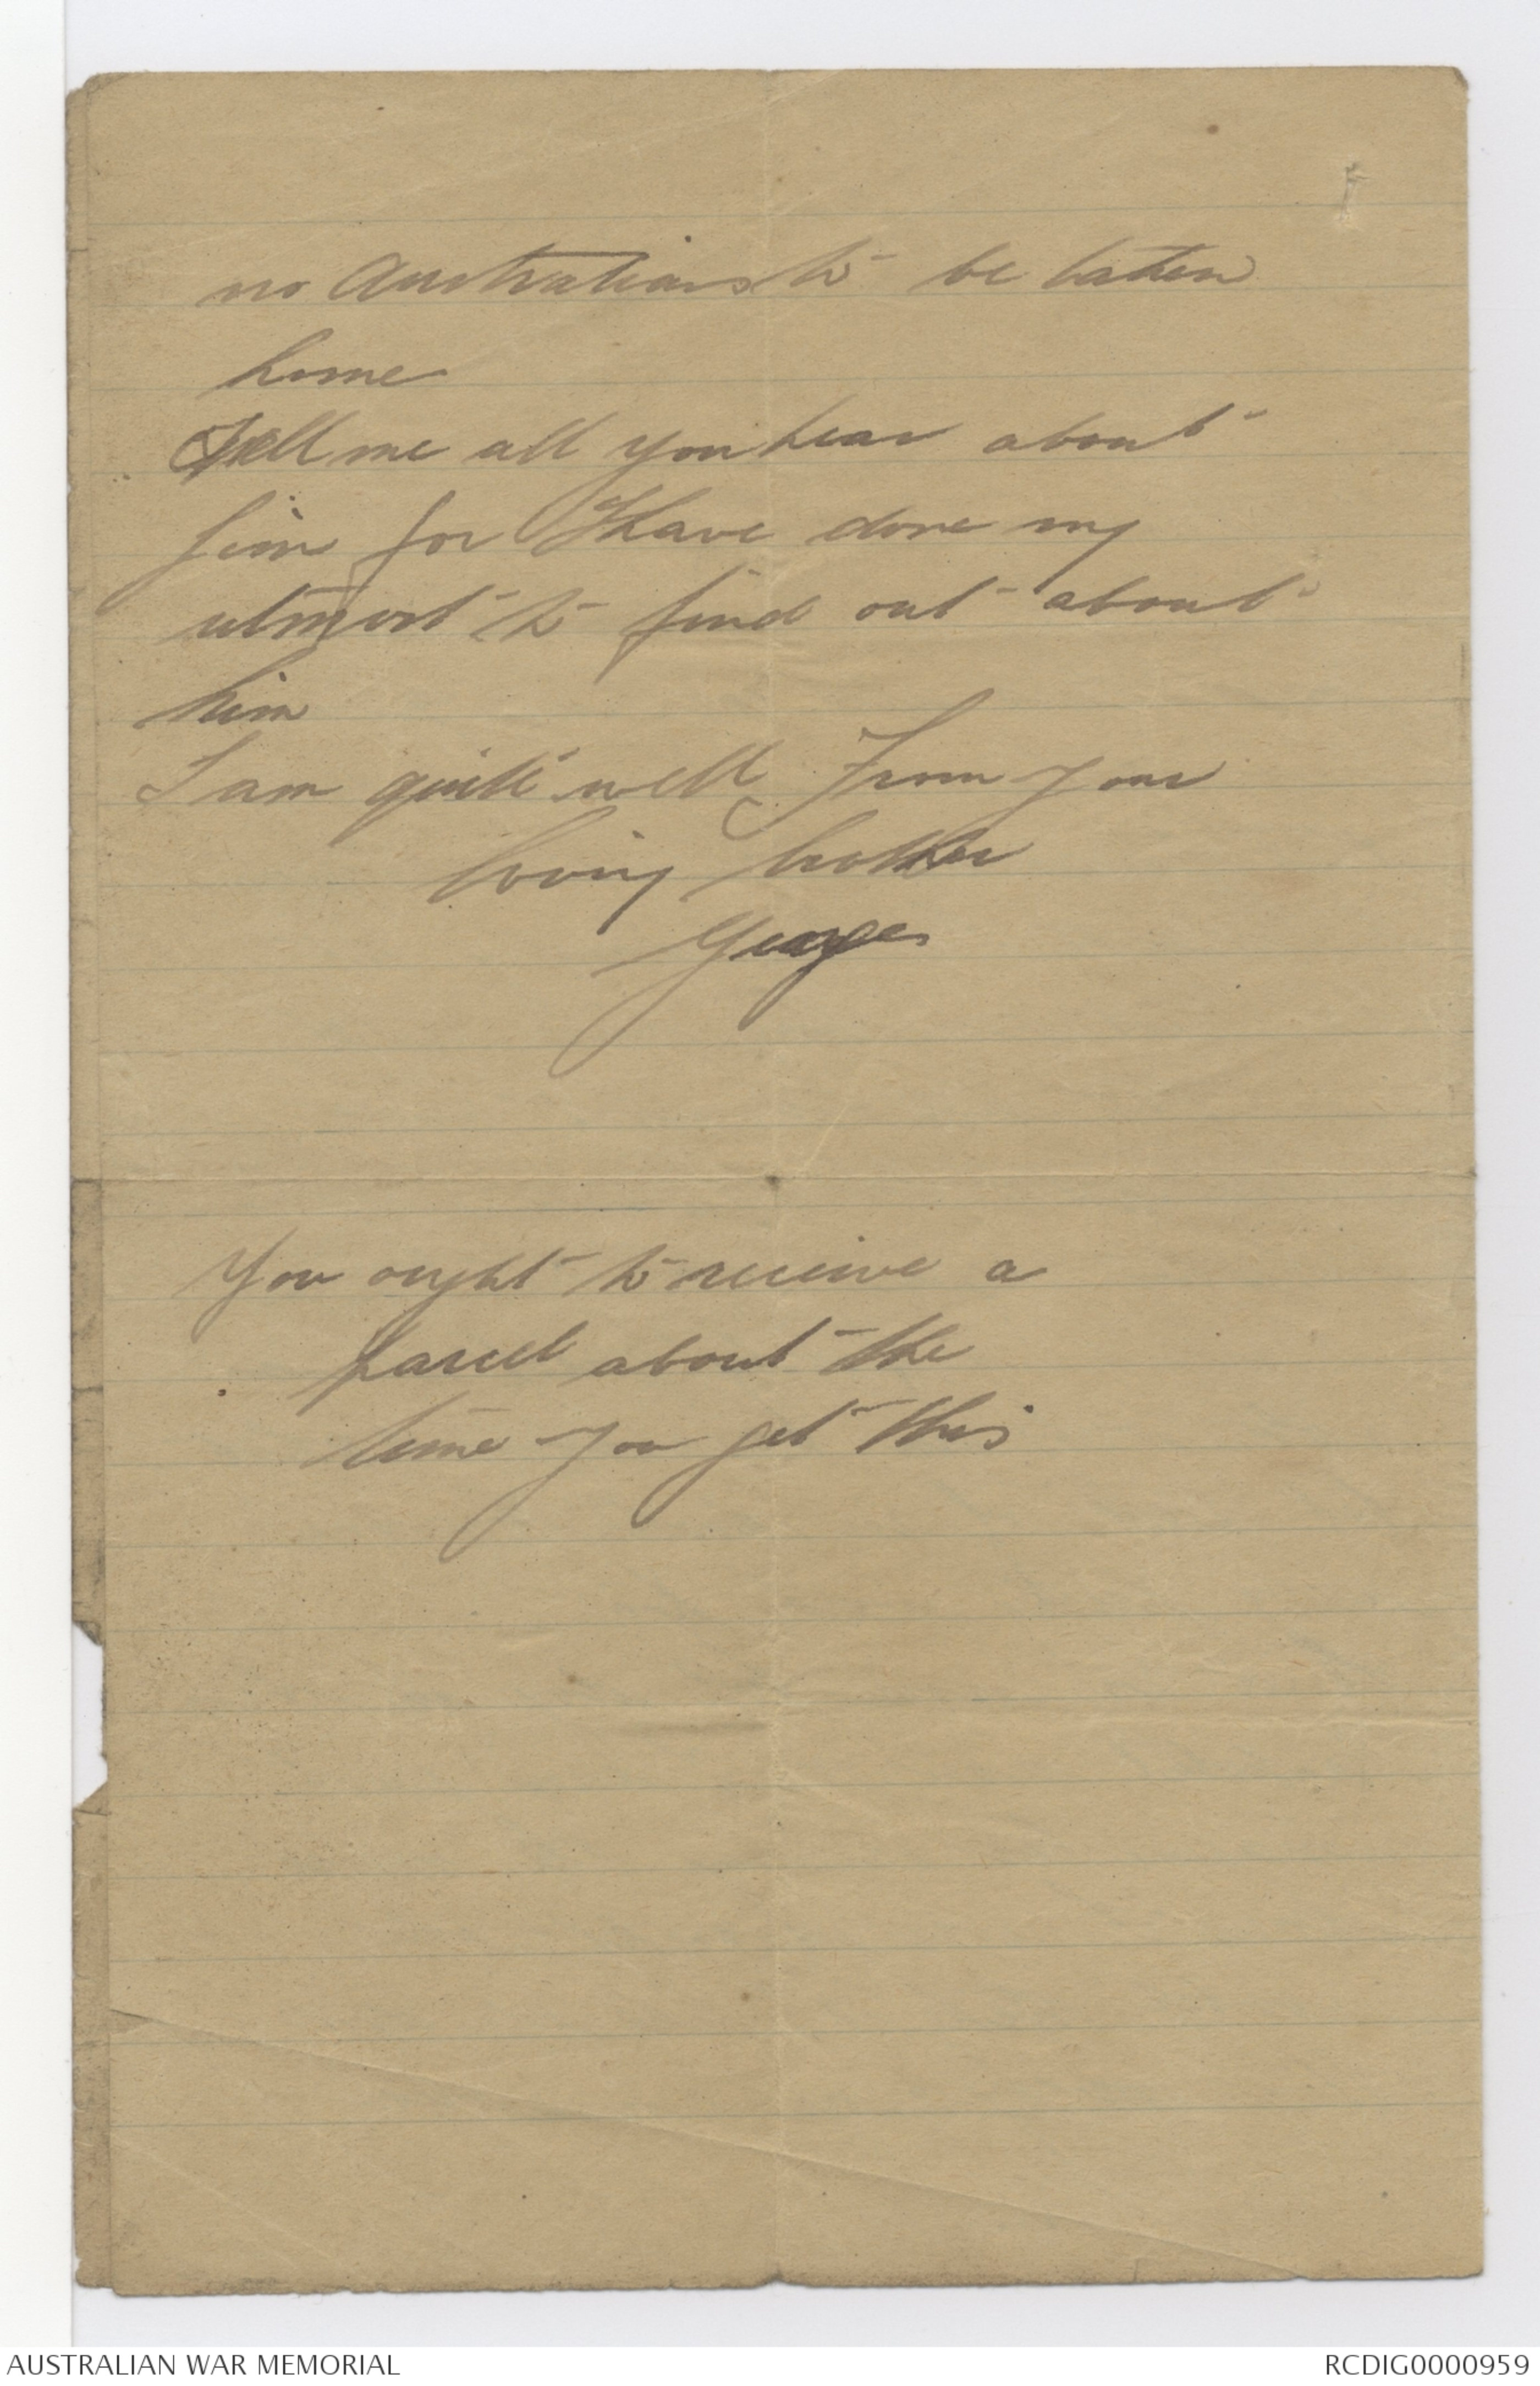 no Australians to be taken
home
Tell me all you hear about
Jim for I have done my
utmost to find out about
him
I am quite well From your
loving brother
George
You ought to receive a
parcel about the
time you get this
AUSTRALIAN WAR MEMORIAL
RCDIG0000959